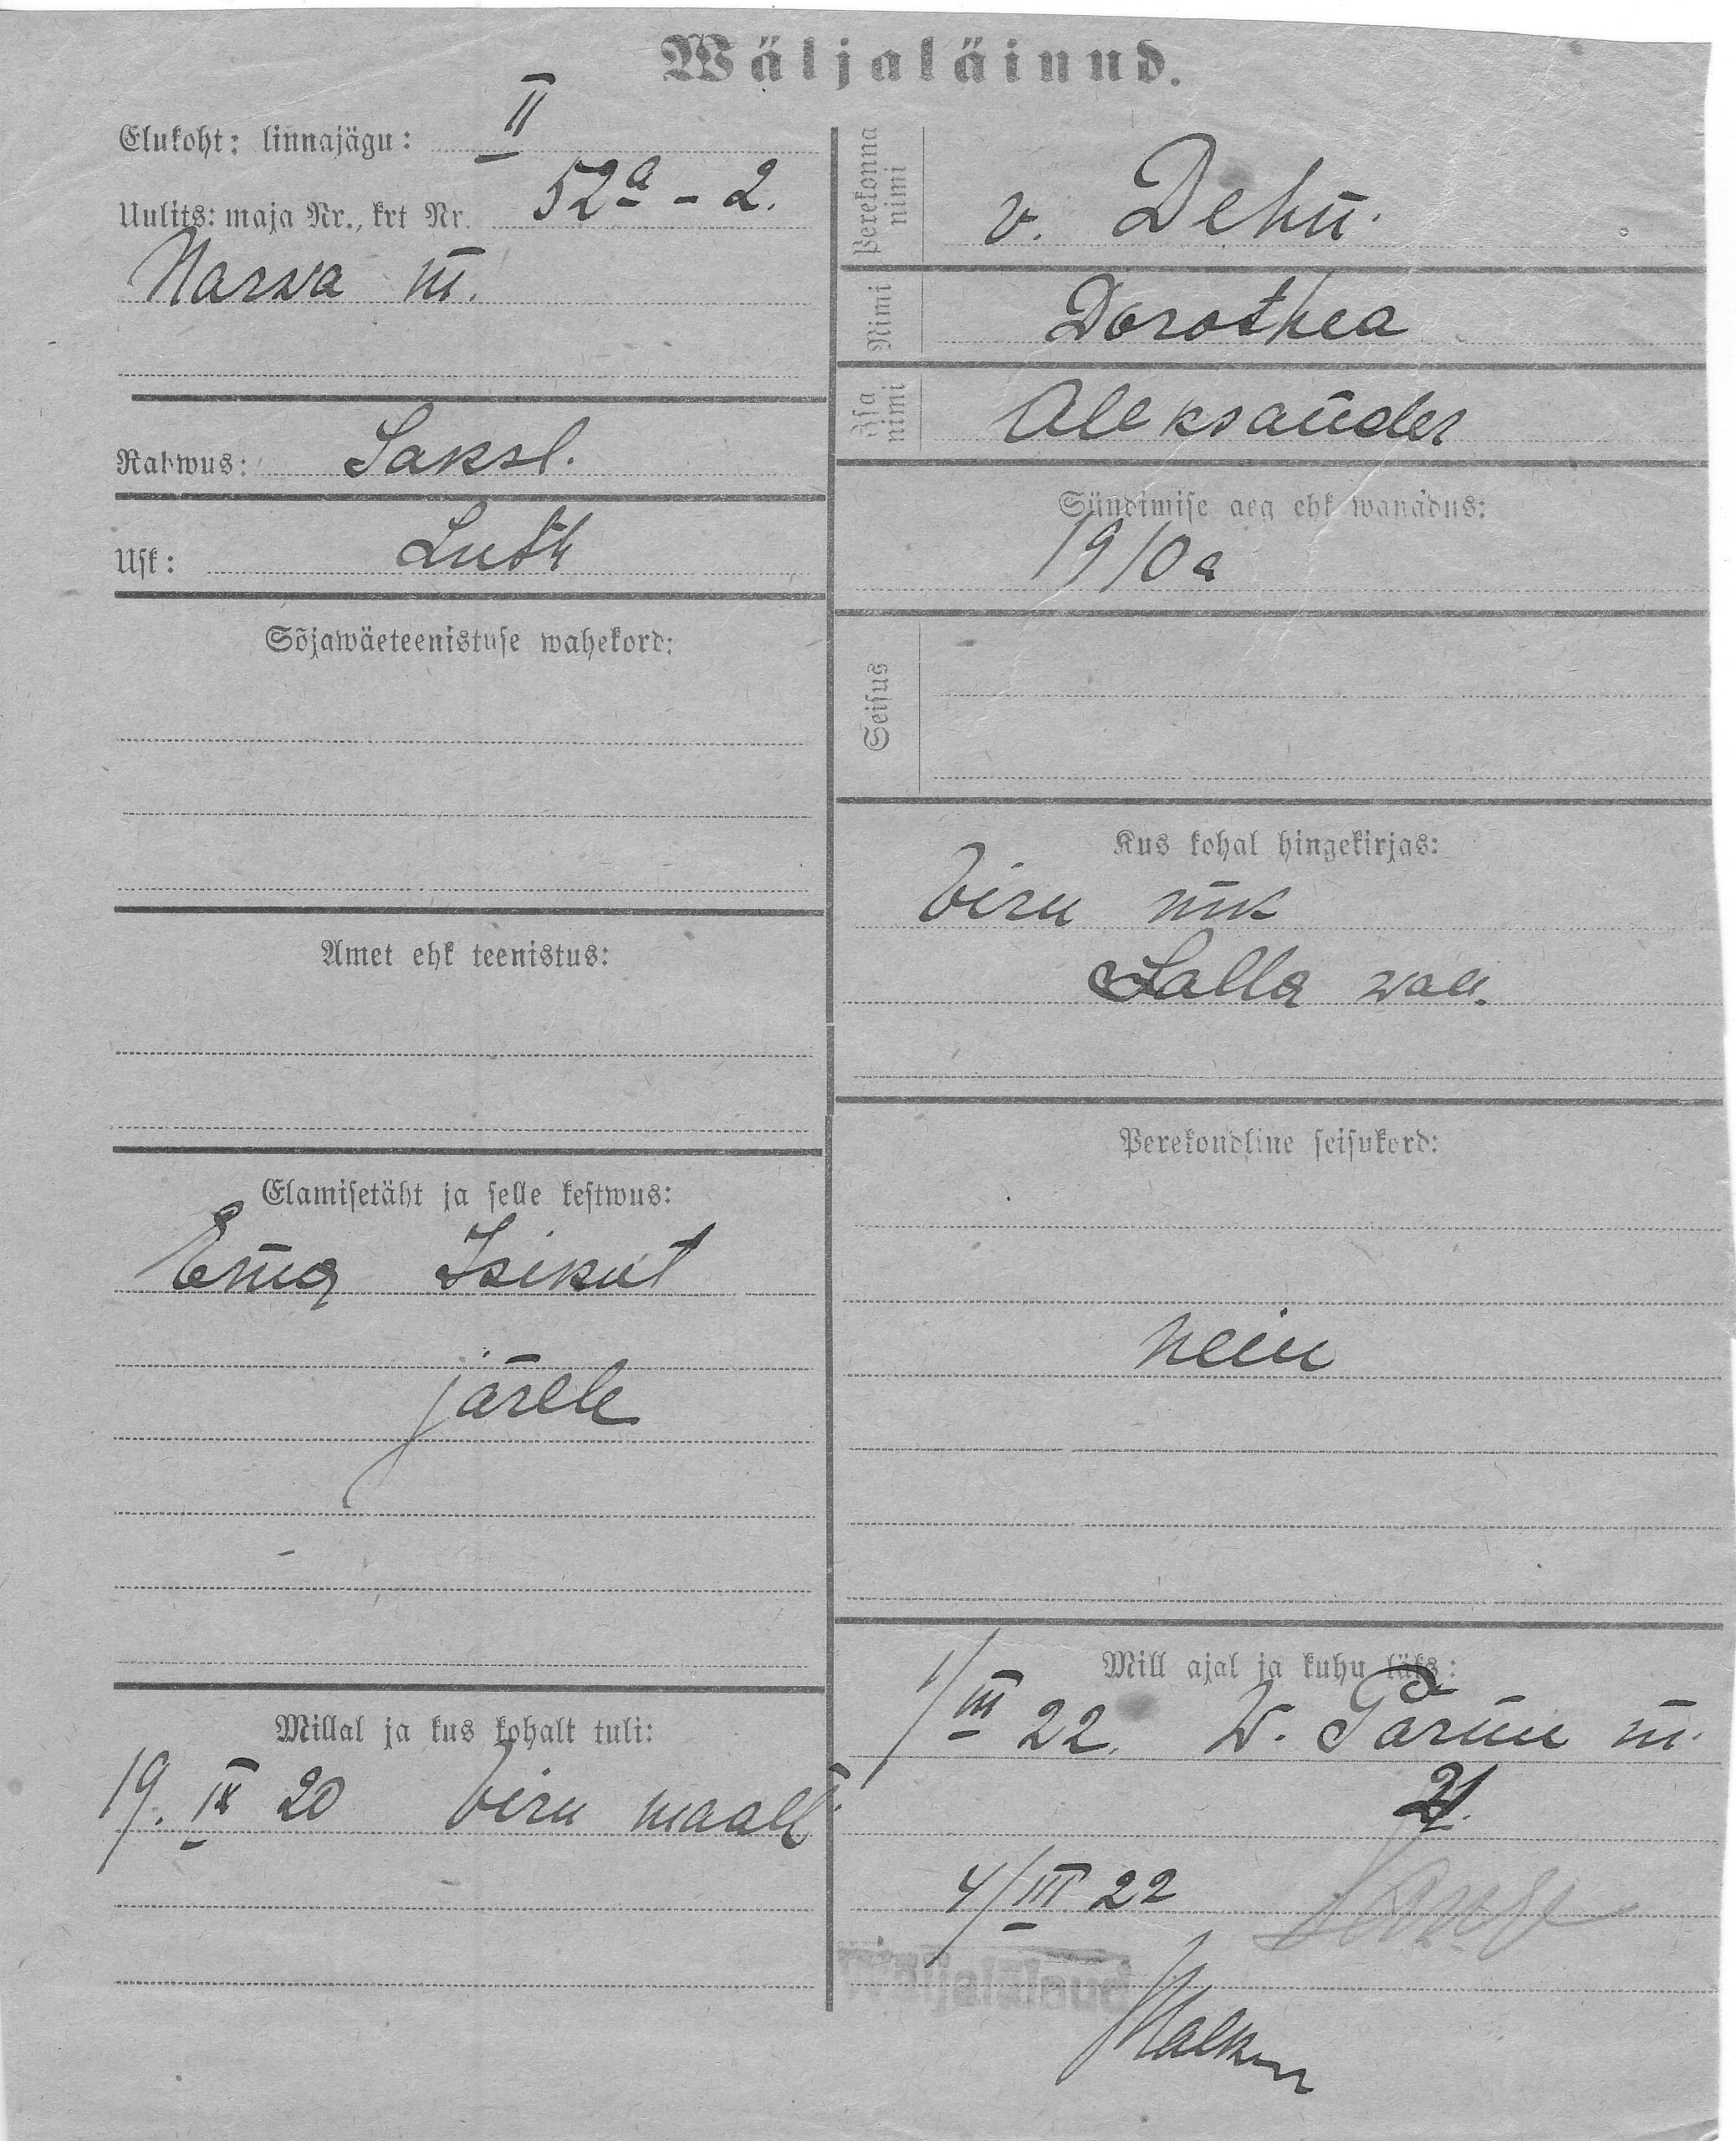 Wäljaläinud.
Elukoht: linnajägu: II
Uulits: maja Nr., krt Nr. 52a - 2.
Narva m.
Rahwus: Saksl.
Usk: Luth
Sõjawäeteenistuse wahekord:
Amet ehk teenistus:
Elamisetäht ja selle kestwus:
Ema Isikut
järele
Millal ja kus kohalt tuli:
19. IX 20 Viru maalt
Perekonna nimi v. Dehn.
Nimi Dorothea
Isa nimi Aleksander
Sündimise aeg ehk wanadus:
1910 a
Seisus
Kus kohal hingekirjas:
Viru mk
Salla wall.
Perekondline seisukord:
neiu
Mill ajal ja kuhu läks:
1/III 22. W. Pärnu m.
21.
4/III 22
Wäljaläinud